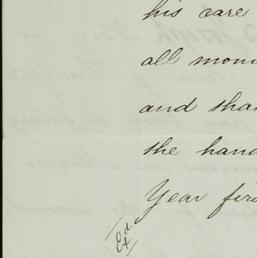 his care
all mon
and sha
the han
Year fir
Ex